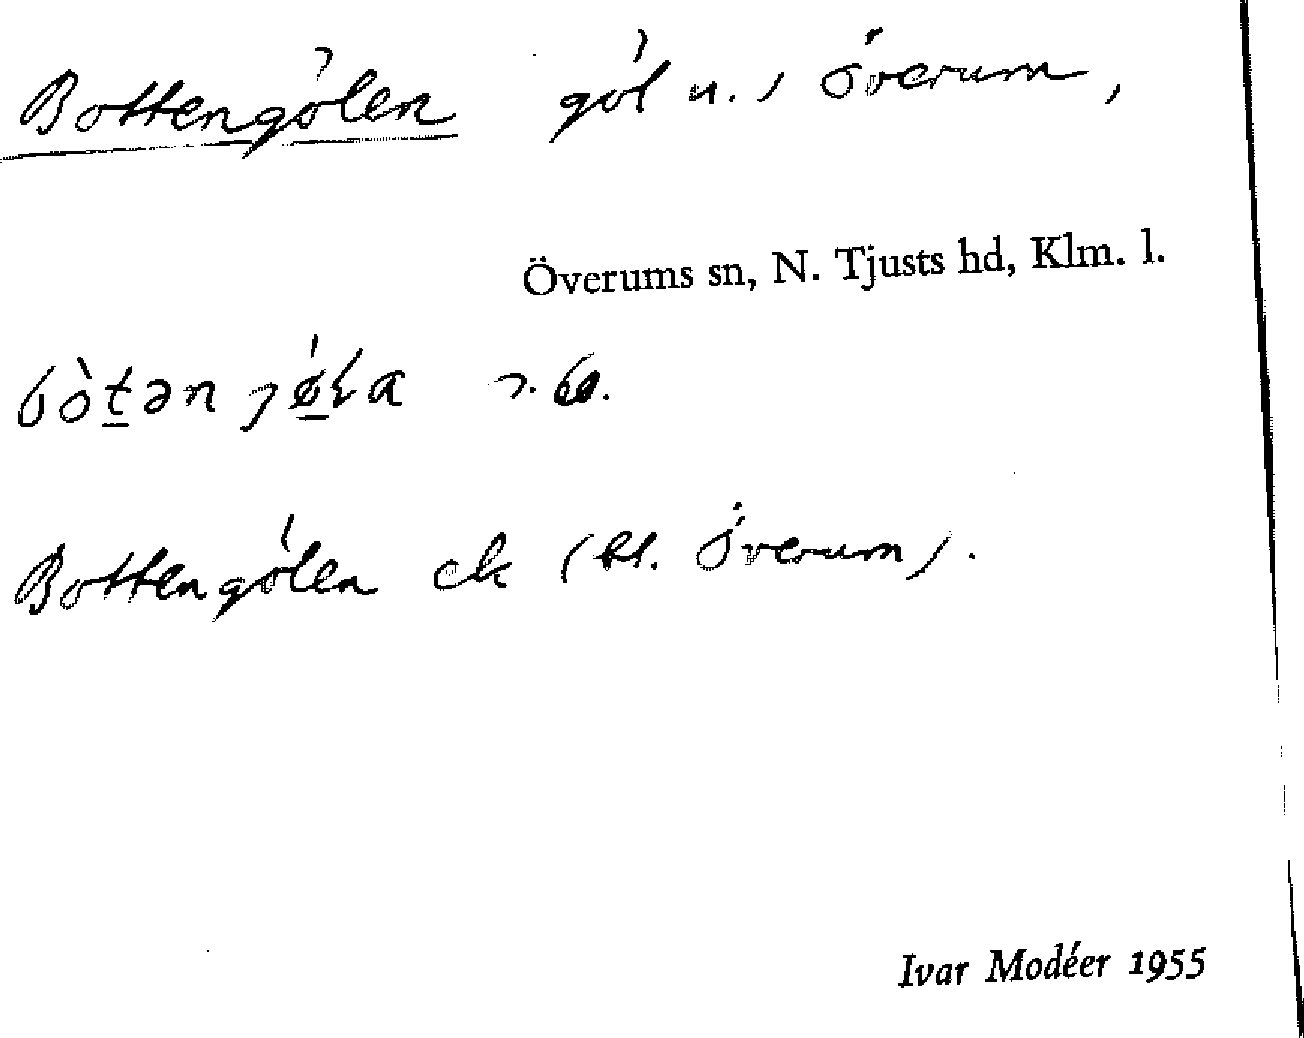 Bottengölen göl u., Överum,
Överums sn, N. Tjusts hd, Klm. l.
Bottengölen ek (bl. Överum).
Ivar Modéer 1955